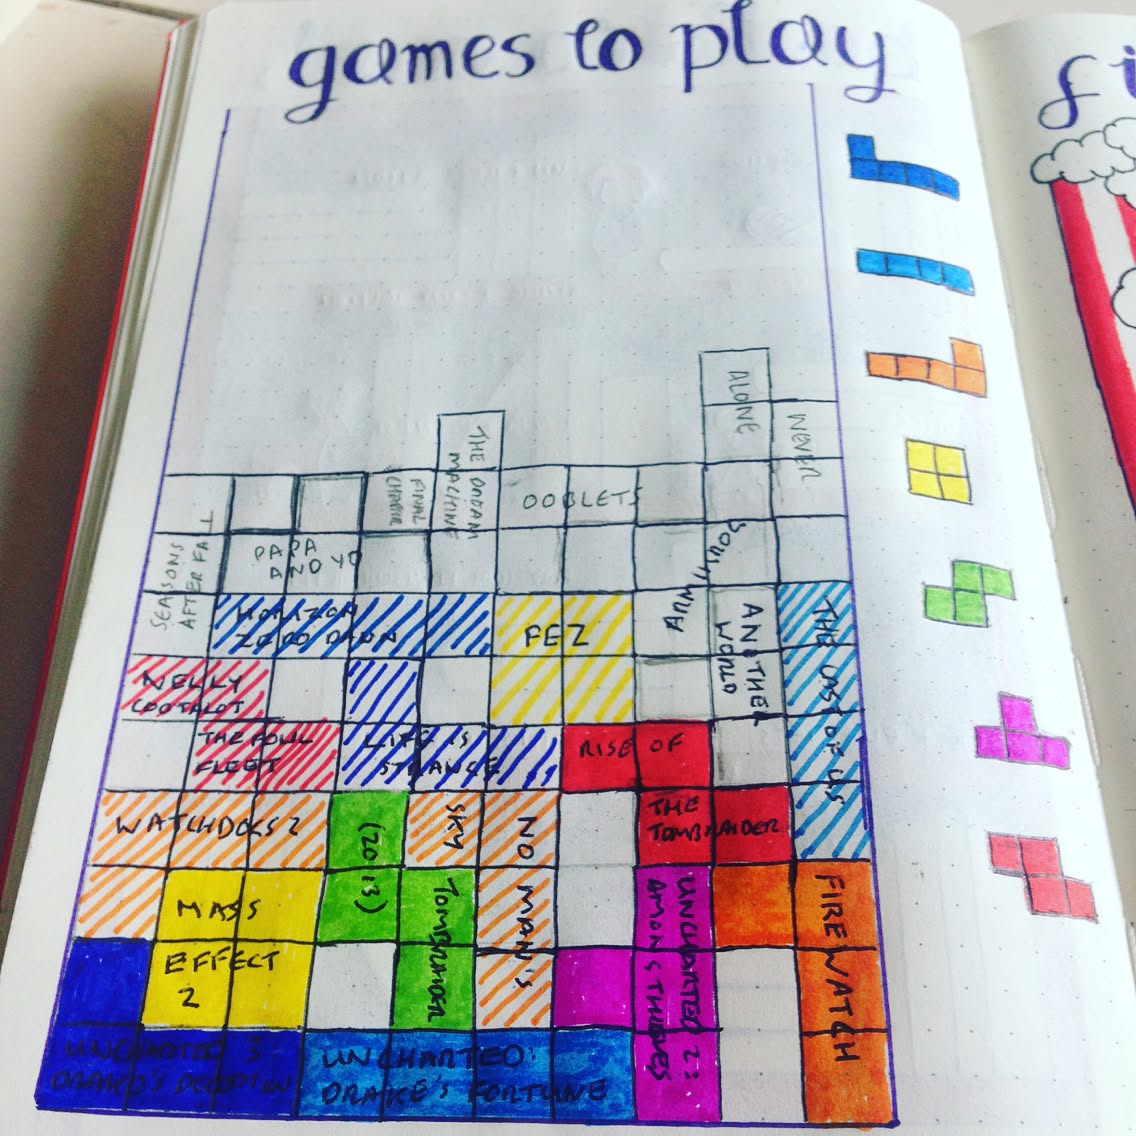 games to play
fi
ALONE
NEVER
THE DREAM
MACHINE
FINAL
OOBLETS
SEASONS
AFTER FALL
PAPA
AND YO
SOULS
ANOTHER
WORLD
HORIZON
ZERO DAWN
FEZ
THE LAST OF US
NELLY
COOTALOT
THE FOWL
FLEET
LIFE IS
STRANGE
RISE OF
THE
TOMBRAIDER
WATCHDOGS 2
(2013)
TOMBRAIDER
SKY
NO MAN'S
MASS
EFFECT
2
UNCHARTED 2:
AMONG THIEVES
FIREWATCH
UNCHARTED 3
DRAKE'S DECEPTION
UNCHARTED:
DRAKE'S FORTUNE